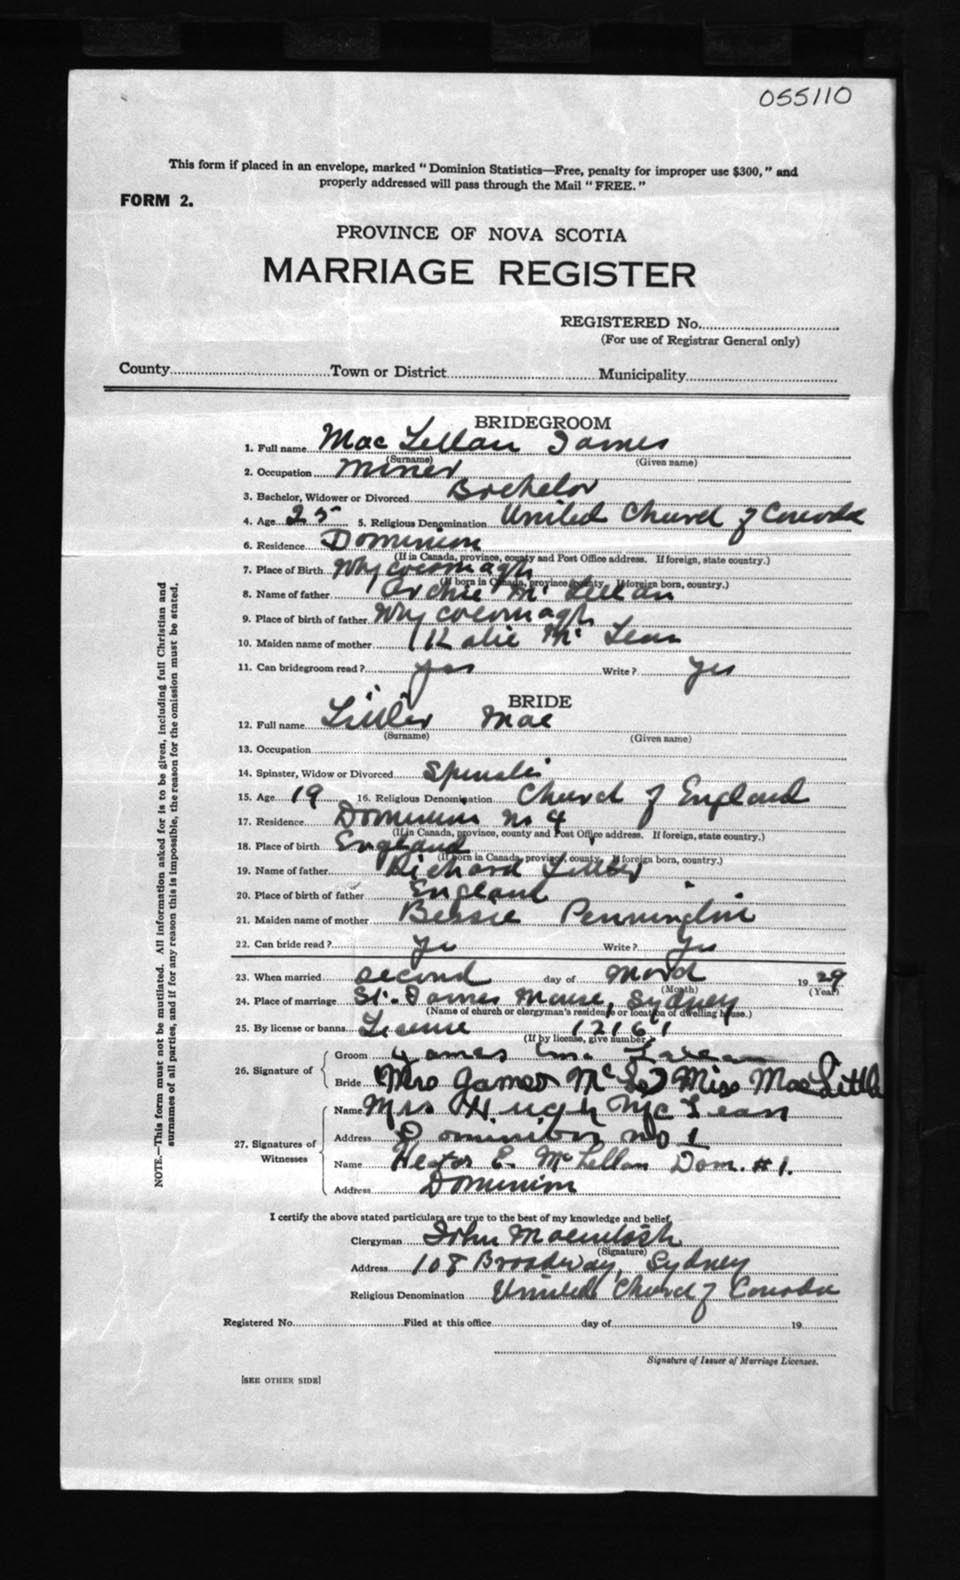 055110
This form if placed in an envelope, marked "Dominion Statistics—Free, penalty for improper use $300," and
properly addressed will pass through the Mail "FREE."
FORM 2.
PROVINCE OF NOVA SCOTIA
MARRIAGE REGISTER
REGISTERED No.
(For use of Registrar General only)
County Town or District Municipality
BRIDEGROOM
1. Full name MacLellan James
(Surname) (Given name)
2. Occupation Miner
3. Bachelor, Widower or Divorced Bachelor
4. Age 25 5. Religious Denomination United Church of Canada
6. Residence Dominion
(If in Canada, province, county and Post Office address. If foreign, state country.)
7. Place of Birth Whycocomagh
(If born in Canada, province, county. If foreign born, country.)
8. Name of father Archie McLellan
9. Place of birth of father Whycocomagh
10. Maiden name of mother Katie McLean
11. Can bridegroom read? yes Write? yes
BRIDE
12. Full name Littler Mae
(Surname) (Given name)
13. Occupation
14. Spinster, Widow or Divorced Spinster
15. Age 19 16. Religious Denomination Church of England
17. Residence Dominion No 4
(If in Canada, province, county and Post Office address. If foreign, state country.)
18. Place of birth England
(If born in Canada, province, county. If foreign born, country.)
19. Name of father Richard Littler
20. Place of birth of father England
21. Maiden name of mother Bessie Pennington
22. Can bride read? yes Write? yes
23. When married second day of March 1929
(Month) (Year)
24. Place of marriage St. James Manse, Sydney
(Name of church or clergyman's residence or location of dwelling house.)
25. By license or banns License 12161
(If by license, give number)
26. Signature of
Groom James
Bride Mrs James Mc Miss Mae Littler
27. Signatures of
Witnesses
Name Mrs Hugh McLean
Address Dominion No 1
Name Hector E. McLellan Dom. #1.
Address Dominion
I certify the above stated particulars are true to the best of my knowledge and belief.
Clergyman John Macintosh
(Signature)
Address 108 Broadway, Sydney
Religious Denomination United Church of Canada
Registered No. Filed at this office day of 19
Signature of Issuer of Marriage Licenses.
[SEE OTHER SIDE]
NOTE.—This form must not be mutilated. All information asked for is to be given, including full Christian and
surnames of all parties, and if for any reason this is impossible, the reason for the omission must be stated.